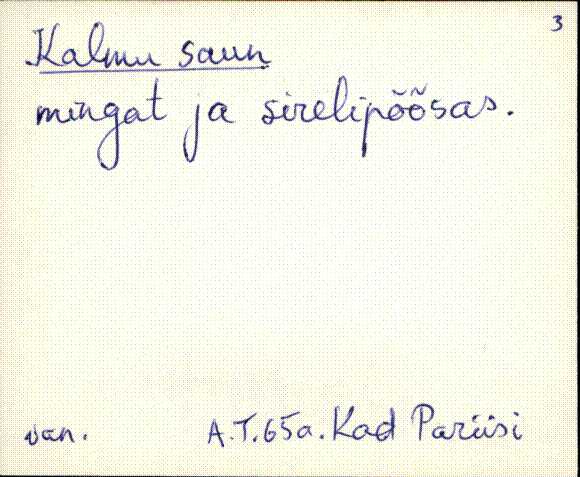 3
Kalmu saun
mingat ja sirelipõõsas.
van. A.T.65a. Kad Pariisi